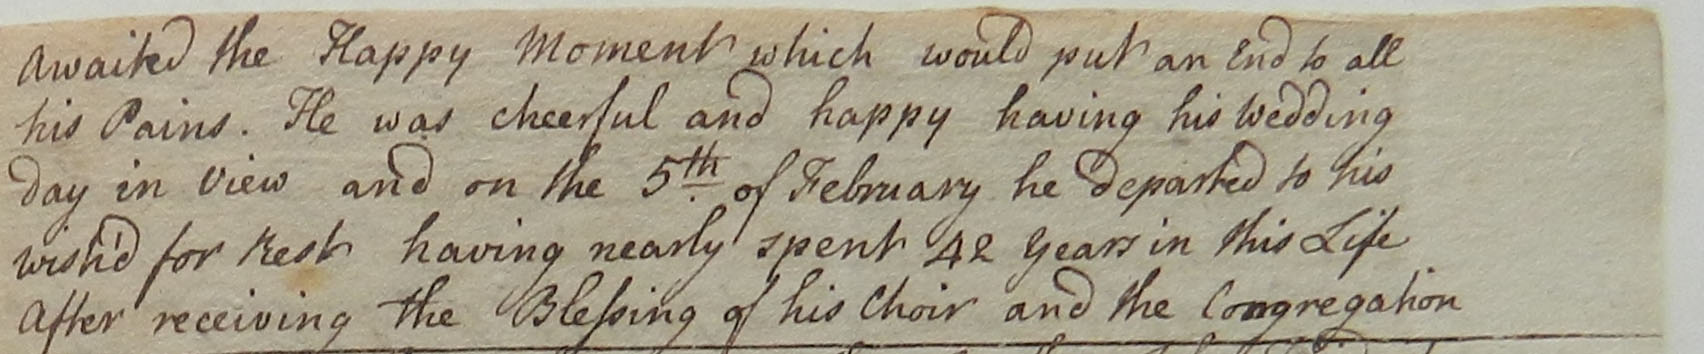 Awaited the Happy Moment which would put an End to all
his Pains. He was cheerful and happy having his Wedding
day in View and on the 5th of February he departed to his
wish'd for Rest having nearly spent 42 Years in this Life
After receiving the Bleſsing of his Choir and the Congregation